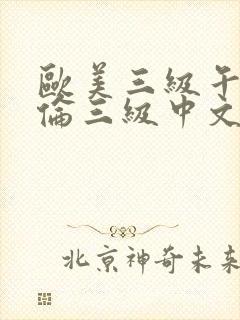 歐美三級午
倫三級中文
北京神奇未来